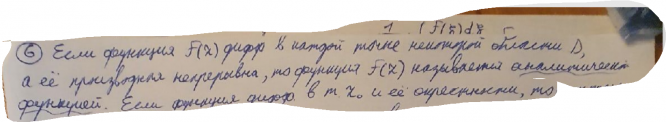 1 (f(z)dz
⑥ Если функция f(z) дифф в каждой точке некоторой области D,
а её производная непрерывна, то функция f(z) называется аналитическ
функцией. Если функция дифф в т z₀ и её окрестности, то